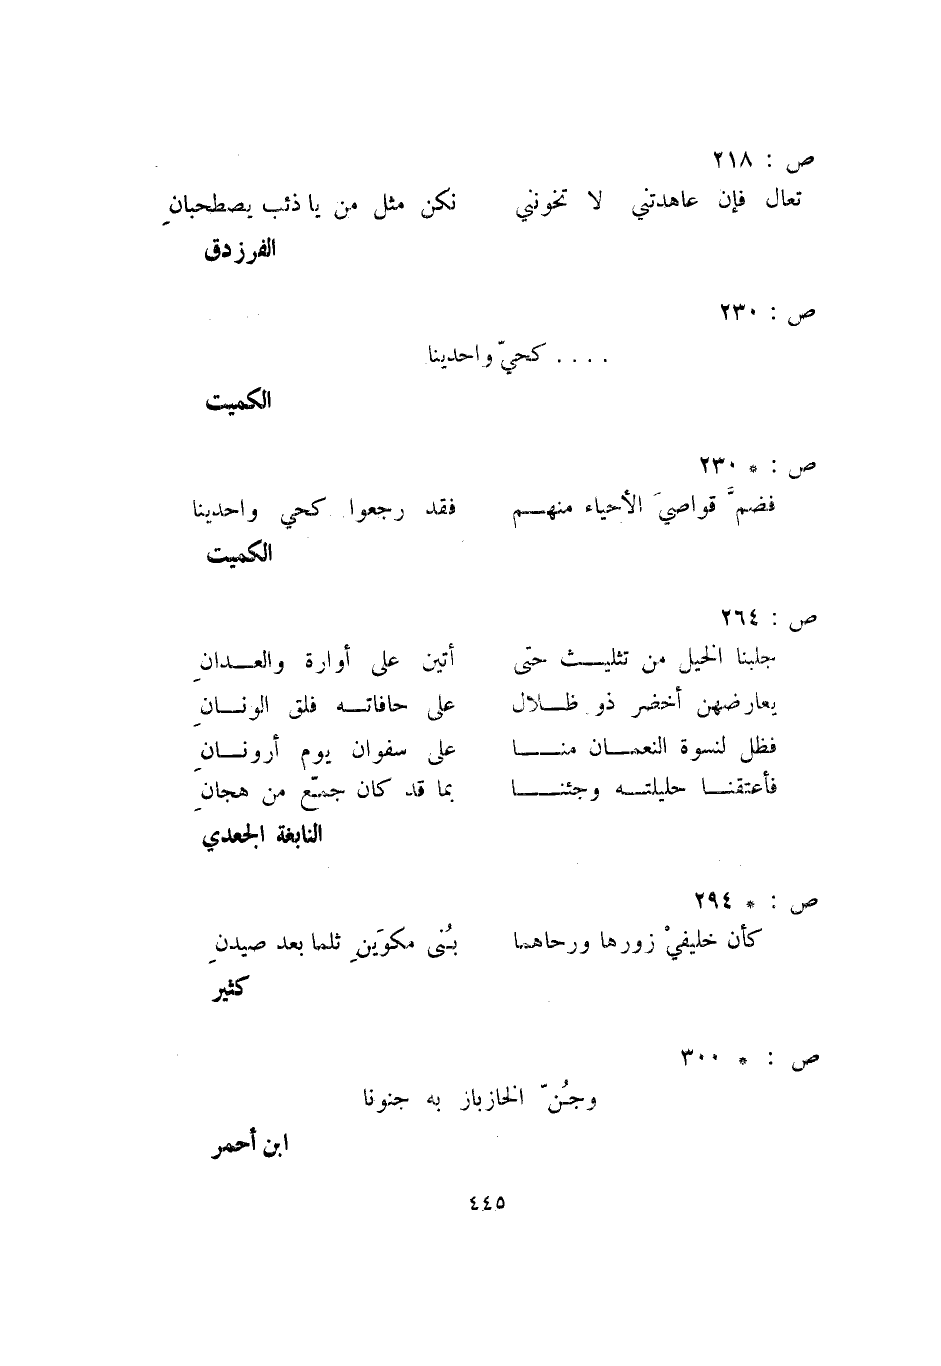 ص : ٢١٨
تعال فإن عاهدتني لا تخونني نكن مثل من يا ذئب يصطحبانِ
الفرزدق
ص : ٢٣٠
.... كحيّ واحدينا
الكميت
ص : * ٢٣٠
فضمَّ قواصيَ الأحياء منهـم فقد رجعوا كحي واحدينا
الكميت
ص : ٢٦٤
جلبنا الخيل من تثليـث حتى أتين على أوارة والعـدانِ
يعارضهن أخضر ذو ظـلال على حافاتـه فلق الونـانِ
فظل لنسوة النعمـان منـا على سفوان يوم أرونـانِ
فأعتقنـا حليلتـه وجئنـا بما قد كان جمّع من هجانِ
النابغة الجعدي
ص : * ٢٩٤
كأن خليفيْ زورها ورحاهما بُنى مكوَينِ ثلما بعد صيدنِ
كثير
ص : * ٣٠٠
وجُنّ الخازباز به جنونا
ابن أحمر
٤٤٥